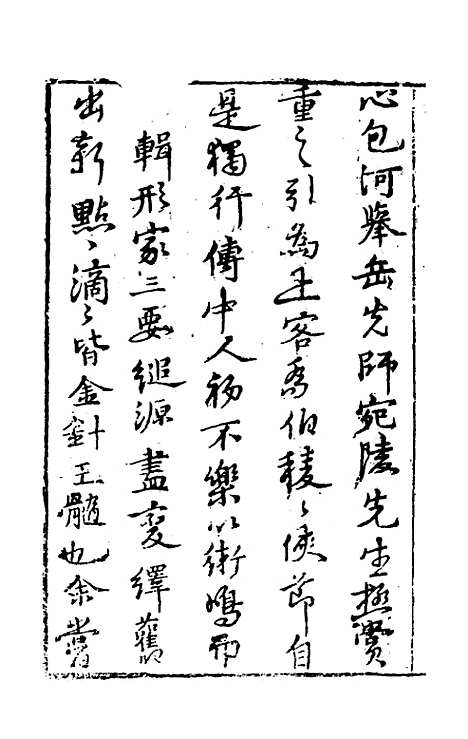 心包河擧岳先師宛陵先生極賞
重之引為上客喬伯稜〻俠節自
是獨行傳中人初不樂以術鳴而
輯形家三要繩源盡变繹舊
出新點〻滴〻皆金針玉髓也余嘗